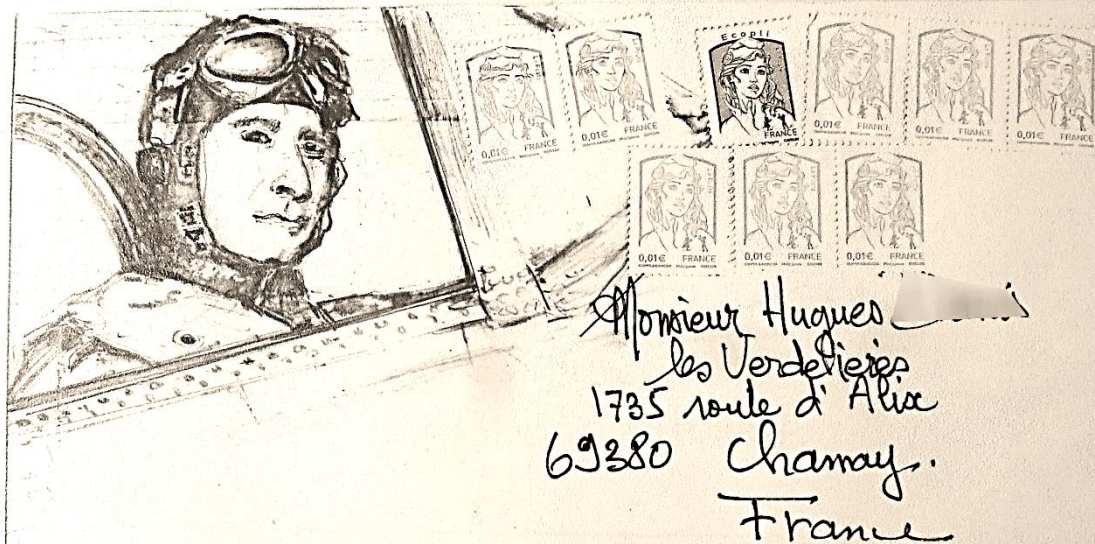 Ecopli
0,01€ FRANCE
0,01€ FRANCE
FRANCE
0,01€ FRANCE
0,01€ FRANCE
0,01€ FRANCE
0,01€ FRANCE
0,01€ FRANCE
0,01€ FRANCE
Monsieur Hugues
les Verdelières
1735 route d'Alix
69380 Charnay.
France